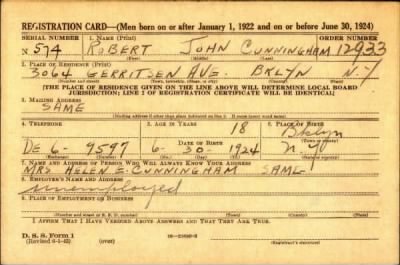 REGISTRATION CARD—(Men born on or after January 1, 1922 and on or before June 30, 1924)
SERIAL NUMBER 1. NAME (Print) ORDER NUMBER
N 574 ROBERT JOHN CUNNINGHAM 12933
(First) (Middle) (Last)
2. PLACE OF RESIDENCE (Print)
3064 GERRITSEN AVE. BKLYN N.Y
(Number and street) (Town, township, village, or city) (County) (State)
[THE PLACE OF RESIDENCE GIVEN ON THE LINE ABOVE WILL DETERMINE LOCAL BOARD
JURISDICTION; LINE 2 OF REGISTRATION CERTIFICATE WILL BE IDENTICAL]
3. MAILING ADDRESS
SAME
[Mailing address if other than place indicated on line 2. If same insert word same]
4. TELEPHONE 5. AGE IN YEARS 6. PLACE OF BIRTH
18 Bklyn
DATE OF BIRTH
DE 6- 9597 6 - 30 - 1924 N.Y
(Exchange) (Number) (Mo.) (Day) (Yr.) (State or country)
7. NAME AND ADDRESS OF PERSON WHO WILL ALWAYS KNOW YOUR ADDRESS
MRS HELEN E. CUNNINGHAM SAME
8. EMPLOYER'S NAME AND ADDRESS
unemployed
9. PLACE OF EMPLOYMENT OR BUSINESS
(Number and street or R. F. D. number) (Town) (County) (State)
I AFFIRM THAT I HAVE VERIFIED ABOVE ANSWERS AND THAT THEY ARE TRUE.
D. S. S. Form 1
(Revised 6-9-42) (over) (Registrant's signature)